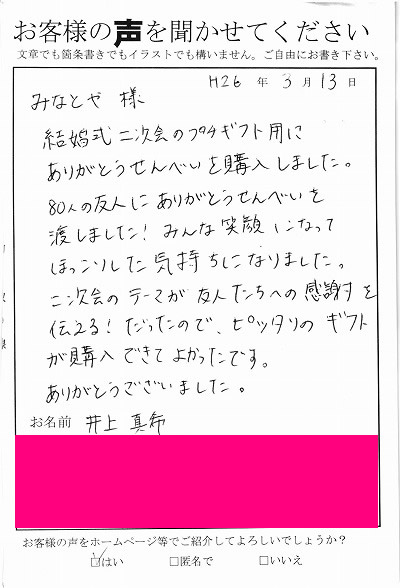 お客様の声を聞かせてください
文章でも箇条書きでもイラストでも構いません。ご自由にお書き下さい。
H26 年 3 月 13 日
みなとや 様
結婚式二次会のプチギフト用に
ありがとうせんべいを購入しました。
80人の友人にありがとうせんべいを
渡しました！みんな笑顔になって
ほっこりした気持ちになりました。
二次会のテーマが友人たちへの感謝を
伝える！だったので、ピッタリのギフト
が購入できてよかったです。
ありがとうございました。
お名前 井上 真希
お客様の声をホームページ等でご紹介してよろしいでしょうか？
☑はい □匿名で □いいえ